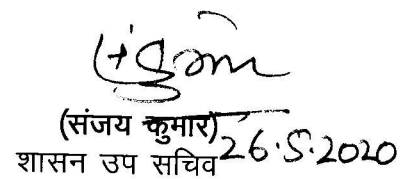 (संजय कुमार)
शासन उप सचिव 26.5.2020